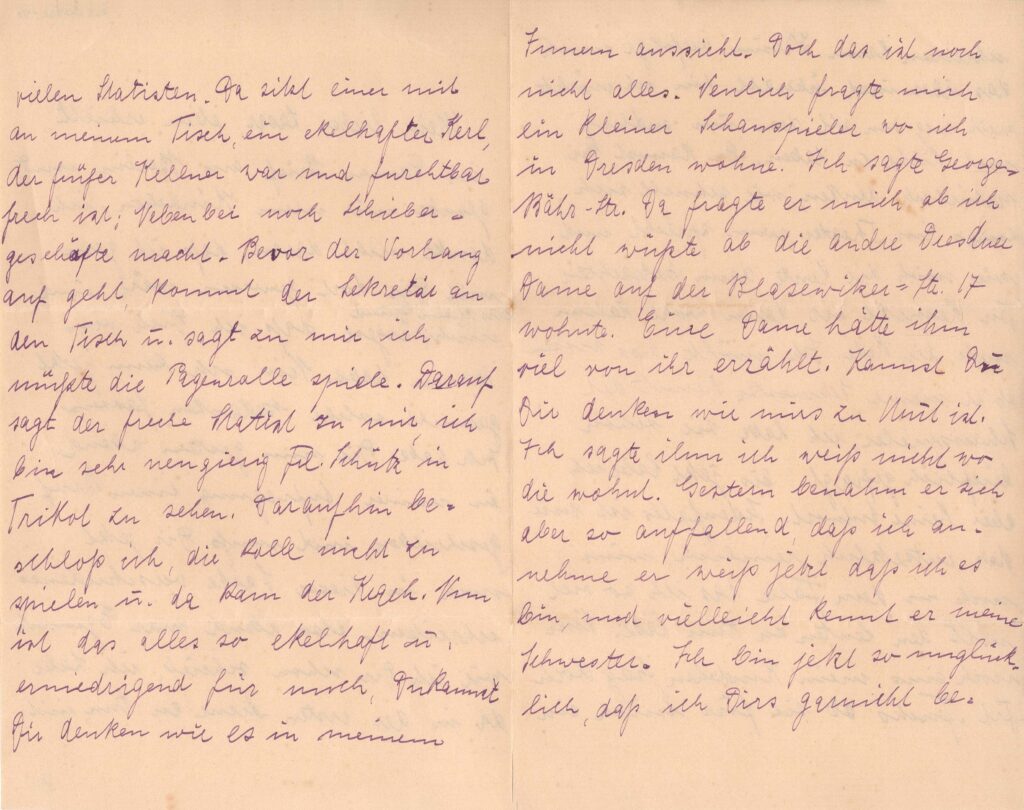 vielen Statisten. Da sitzt einer mit
an meinem Tisch, ein ekelhafter Kerl,
der früher Kellner war und furchtbar
frech ist; Nebenbei noch Schieber-
geschäfte macht. Bevor der Vorhang
auf geht, kommt der Sekretär an
den Tisch u. sagt zu mir ich
müßte die Pagenrolle spiele. Darauf
sagt der freche Statist zu mir, ich
bin sehr neugierig Frl. Schütz in
Trikot zu sehen. Daraufhin be-
schloß ich, die Rolle nicht zu
spielen u. da kam der Krach. Nun
ist das alles so ekelhaft u.
erniedrigend für mich, Du kannst
Dir denken wie es in meinem
Innern aussieht. Doch das ist noch
nicht alles. Neulich fragte mich
ein kleiner Schauspieler wo ich
in Dresden wohne. Ich sagte George-
Bähr-Str. Da fragte er mich ob ich
nicht wüßte ob die andre Dresdner
Dame auf der Blasewiker-Str. 17
wohnte. Eine Dame hätte ihm
viel von ihr erzählt. Kannst Du
Dir denken wie mirs zu Mut ist.
Ich sagte ihm ich weiß nicht wo
die wohnt. Gestern benahm er sich
aber so auffallend, daß ich an-
nehme er weiß jetzt daß ich es
bin, und vielleicht kennt er meine
Schwester. Ich bin jetzt so unglück-
lich, daß ich Dirs garnicht be-